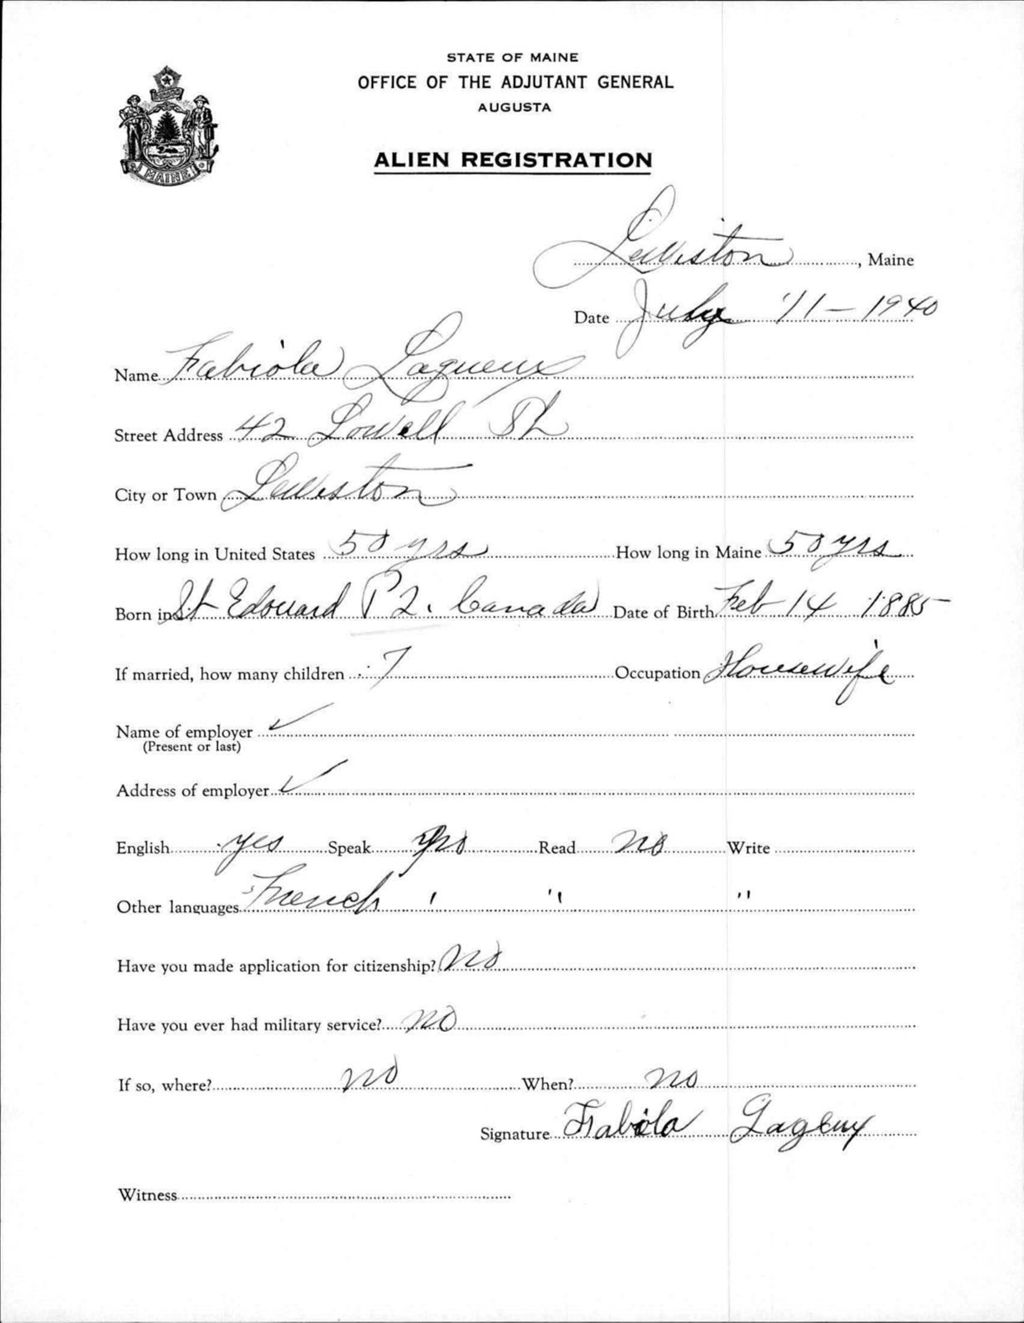 STATE OF MAINE
OFFICE OF THE ADJUTANT GENERAL
AUGUSTA
ALIEN REGISTRATION
MAINE
Lewiston, Maine
Date July 11 - 1940
Name Fabiola Lagueux
Street Address 42 Lowell St
City or Town Lewiston
How long in United States 50 yrs How long in Maine 50 yrs
Born in St Edouard P Q. Canada Date of Birth Feb 14 1885
If married, how many children 7 Occupation Housewife
Name of employer ✓
(Present or last)
Address of employer ✓
English yes Speak no Read no Write
Other languages French " " "
Have you made application for citizenship? No
Have you ever had military service? no
If so, where? no When? no
Signature Fabiola Lageuy
Witness